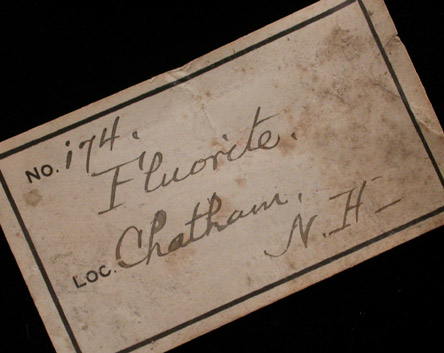 NO. 174.
Fluorite.
LOC. Chatham,
N. H-